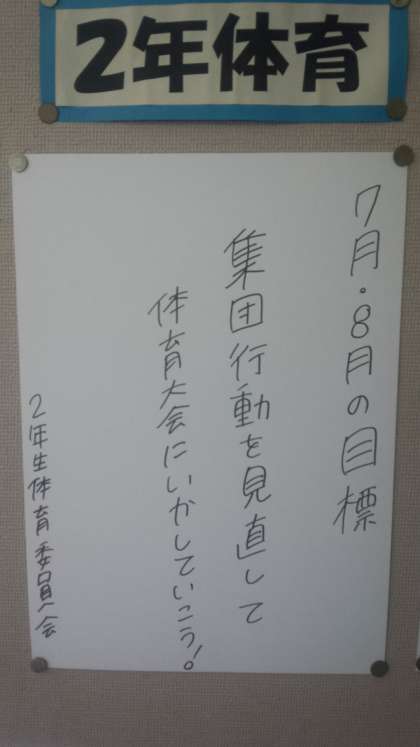 2年体育
7月・8月の目標
集団行動を見直して
体育大会にいかしていこう!
2年生体育委員会